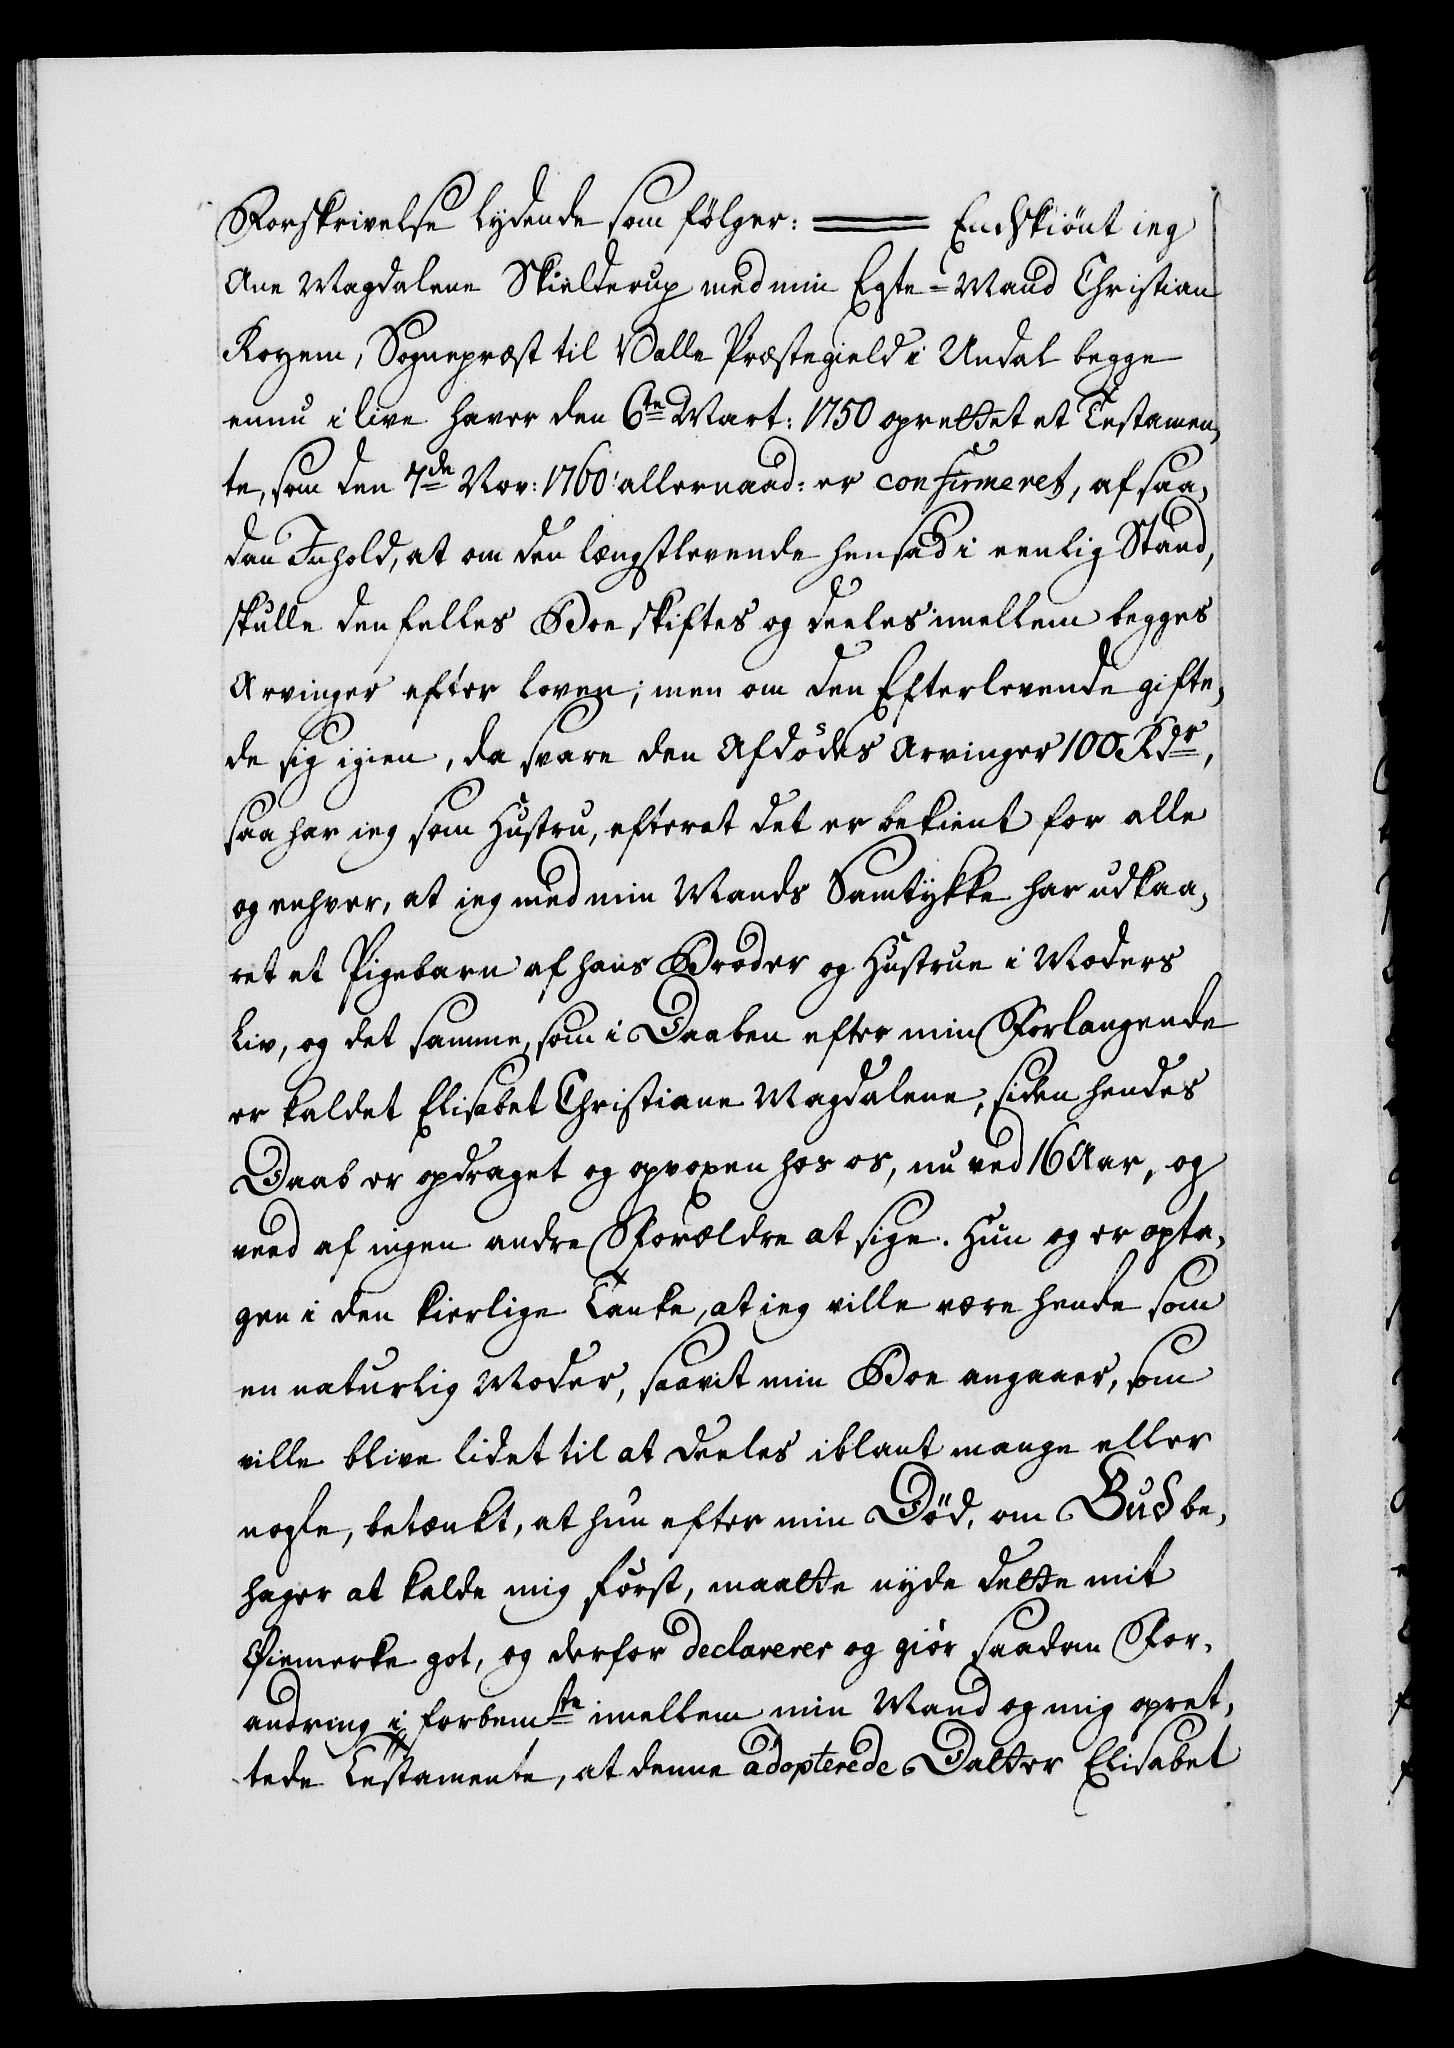 Forskrivelse lydende som følger: ══ Endskiönt ieg
Ane Magdalene Skielderup med min Egte-Mand Christian
Koren, Sognepræst til Valle Præstegield i Undal begge
ennu i live haver den 6te Mart: 1750 oprettet et Testamen,
te, som den 7de Nov: 1760 allernaad: er confirmeret, af saa,
dan Inhold, at om den længstlevende hensad i eenlig Stand,
skulle den felles Boe skiftes og deeles imellem begges
Arvinger efter loven; men om den Efterlevende gifte,
de sig igien, da svare den Afdödes Arvinger 100 Rdr,
saa har ieg som Hustru, efterat det er bekient for alle
og enhver, at ieg med min Mands Samtykke har udkaa,
ret et Pigebarn af hans Broder og Hustrue i Moders
Liv, og det samme, som i Daaben efter min Forlangende
er kaldet Elisabet Christiane Magdalene, siden hendes
Daab er opdraget og opvoxen hos os, nu ved 16 Aar, og
veed af ingen andre Forældre at sige. Hun og er opta,
gen i den kierlige Tanke, at ieg ville være hende som
en naturlig Moder, saavit min Boe angaaer, som
ville blive lidet til at deeles iblant mange eller
nogle, betænkt, at hun efter min Död, om Gud be,
hager at kalde mig först, maatte nyde dette mit
Øiemerke got, og derfor declarerer og giör saadan For,
andring i forbemte imellem min Mand og mig opret,
tede Testamente, at denne adopterede Datter Elisabet